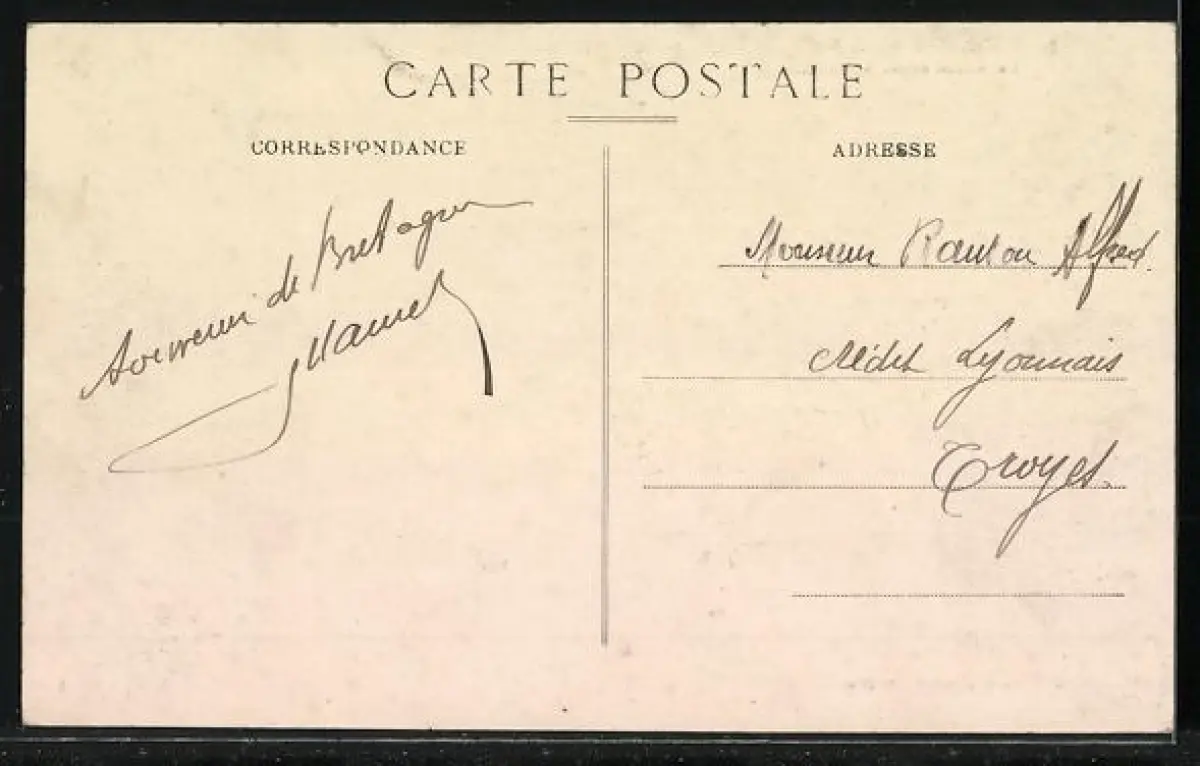 CARTE POSTALE
CORRESPONDANCE
Souvenir de Bretagne
ADRESSE
Monsieur Alfred.
Crédit Lyonnais
Troyes.